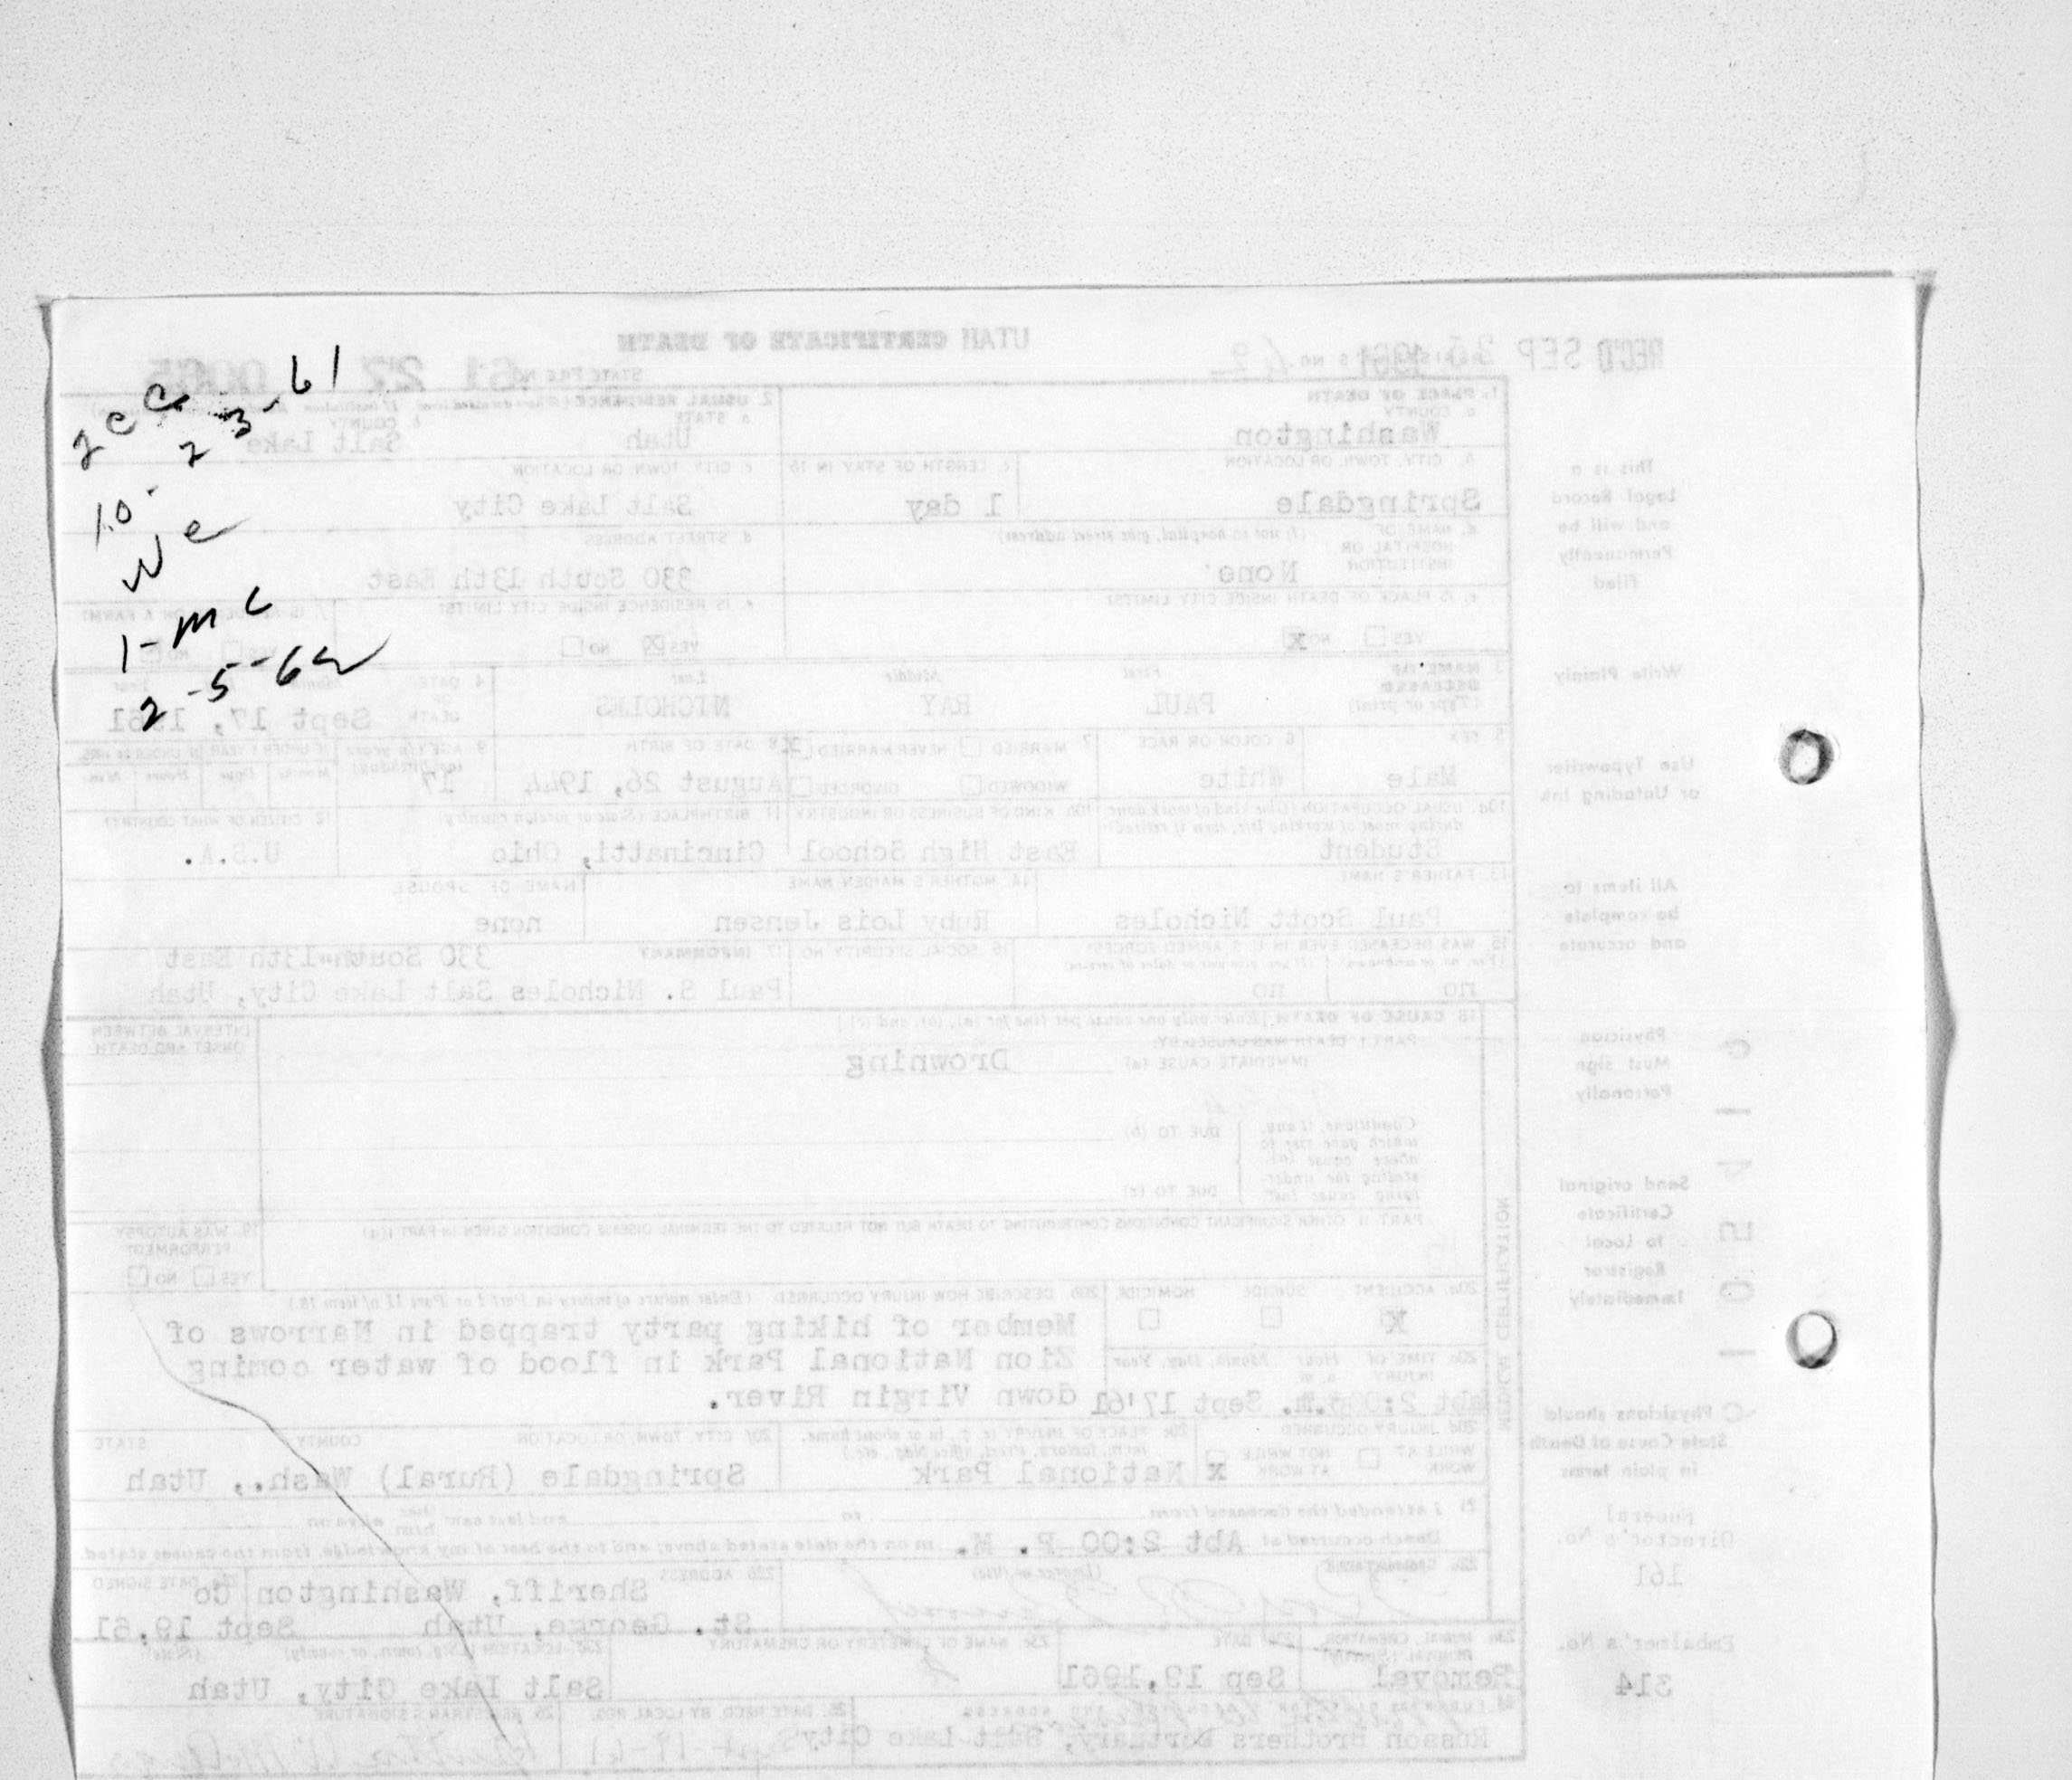 2cc
10-23-61
We
1-mc
2-5-62
UTAH CERTIFICATE OF DEATH
REC'D SEP 1961
REGISTRAR'S NO. 42
STATE FILE NO. 61 27
1. PLACE OF DEATH
a. COUNTY
Washington
2. USUAL RESIDENCE
a. STATE
Utah
b. COUNTY
Salt Lake
b. CITY, TOWN, OR LOCATION
Springdale
c. LENGTH OF STAY IN 1b
1 day
c. CITY, TOWN, OR LOCATION
Salt Lake City
d. NAME OF HOSPITAL OR INSTITUTION
(If not in hospital, give street address)
None
d. STREET ADDRESS
330 South 13th East
e. IS PLACE OF DEATH INSIDE CITY LIMITS?
YES NO X
e. IS RESIDENCE INSIDE CITY LIMITS?
YES X NO
3. NAME OF DECEASED
(Type or print)
First Middle Last
PAUL RAY NICHOLES
4. DATE OF DEATH
Sept 17, 1961
5. SEX
Male
6. COLOR OR RACE
White
7. MARRIED NEVER MARRIED X
WIDOWED DIVORCED
8. DATE OF BIRTH
August 26, 1944
9. AGE (In years last birthday)
17
10a. USUAL OCCUPATION (Give kind of work done during most of working life, even if retired)
Student
10b. KIND OF BUSINESS OR INDUSTRY
East High School
11. BIRTHPLACE (State or foreign country)
Cincinatti, Ohio
12. CITIZEN OF WHAT COUNTRY?
U.S.A.
13. FATHER'S NAME
Paul Scott Nicholes
14. MOTHER'S MAIDEN NAME
Ruby Lois Jensen
NAME OF SPOUSE
none
15. WAS DECEASED EVER IN U.S. ARMED FORCES?
no no
16. SOCIAL SECURITY NO.
17. INFORMANT
330 South 13th East
Paul S. Nicholes Salt Lake City, Utah
18. CAUSE OF DEATH [Enter only one cause per line for (a), (b), and (c).]
PART I. DEATH WAS CAUSED BY:
IMMEDIATE CAUSE (a)
Drowning
INTERVAL BETWEEN ONSET AND DEATH
Conditions, if any, which gave rise to above cause (a), stating the underlying cause last.
DUE TO (b)
DUE TO (c)
PART II. OTHER SIGNIFICANT CONDITIONS CONTRIBUTING TO DEATH BUT NOT RELATED TO THE TERMINAL DISEASE CONDITION GIVEN IN PART I(a)
19. WAS AUTOPSY PERFORMED?
YES NO
20a. ACCIDENT SUICIDE HOMICIDE
X
20b. DESCRIBE HOW INJURY OCCURRED. (Enter nature of injury in Part I or Part II of item 18.)
Member of hiking party trapped in Narrows of
Zion National Park in flood of water coming
down Virgin River.
20c. TIME OF INJURY Hour Month, Day, Year
abt 2:00 p.m. Sept 17'61
20d. INJURY OCCURRED
WHILE AT WORK NOT WHILE AT WORK X
20e. PLACE OF INJURY (e. g., in or about home, farm, factory, street, office bldg., etc.)
National Park
20f. CITY, TOWN, OR LOCATION COUNTY STATE
Springdale (Rural) Wash., Utah
21. I attended the deceased from to and last saw her him alive on
Death occurred at Abt 2:00 P. M. m on the date stated above; and to the best of my knowledge, from the causes stated.
22a. SIGNATURE (Degree or title)
22b. ADDRESS
Sheriff, Washington Co
St. George, Utah
22c. DATE SIGNED
Sept 19,61
23a. BURIAL, CREMATION, REMOVAL (Specify)
Removal
23b. DATE
Sep 19,1961
23c. NAME OF CEMETERY OR CREMATORY
23d. LOCATION (City, town, or county) (State)
Salt Lake City, Utah
24. FUNERAL DIRECTOR ADDRESS
Russon Brothers Mortuary, Salt Lake City
25. DATE RECD. BY LOCAL REG.
Sept-19-61
26. REGISTRAR'S SIGNATURE
MEDICAL CERTIFICATION
This is a
Legal Record
and will be
Permanently
filed
Write Plainly
Use Typewriter
or Unfading Ink
All items to
be complete
and accurate
Physician
Must sign
Personally
Send original
Certificate
to Local
Registrar
Immediately
Physicians should
State Cause of Death
in plain terms
Funeral
Director's No.
161
Embalmer's No.
314